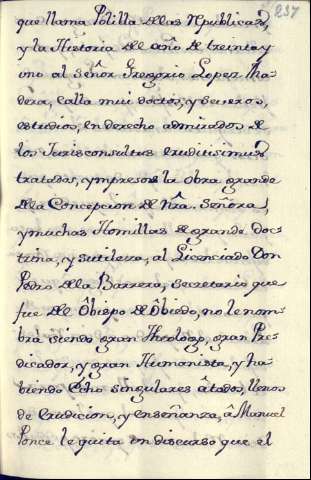 237
que llama Polilla de las Republicas,
y la Historia del año de treinta y
uno al señor Gregorio Lopez Ma
dera, calla mui doctos, y seueros,
estudios, en derecho admirados de
los Jurisconsultos eruditisimos
tratados, ympresos la obra grande
de la Concepcion de Nra. Señora,
y muchas Homilias de grande doc-
trina, y sutileza, al Licenciado Don
Pedro de la Barrera, secretario que
fue del Obispo de Obiedo, no le nom-
bra siendo gran Theologo, gran Pre-
dicador, y gran Humanista, y ha-
biendo echo singulares âtados, llenos
de erudicion, y enseñanza, â Manuel
Ponce le quita un discurso que el